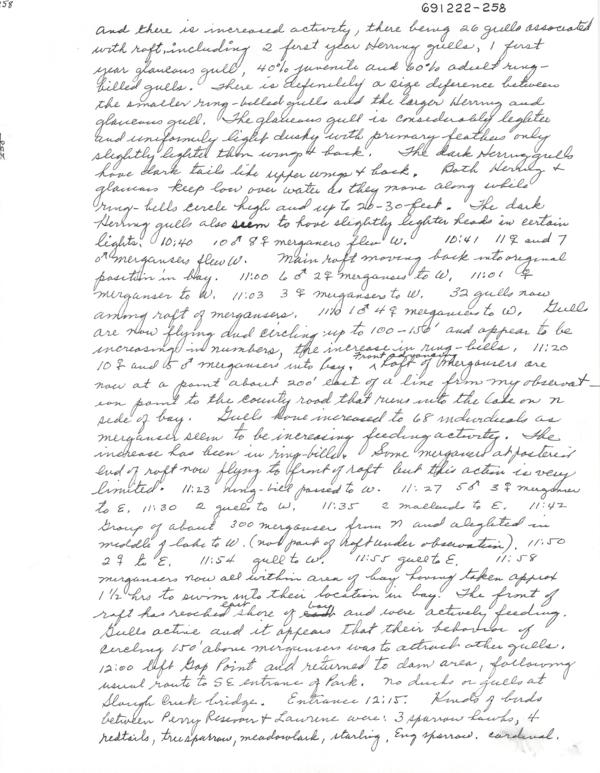 258
691222-258
and there is increased activity, there being 26 gulls associated
with raft, including 2 first year Herring gulls, 1 first
year glaucous gull, 40% juvenile and 60% adult ring-
billed gulls. There is definitely a size diference between
the smaller ring-billed gulls and the larger Herring and
glaucous gull. The glaucous gull is considerably lighter
and uniformily light dusky with primary feathers only
slightly lighter than wings & back. The dark Herring gulls
have dark tails like upper wings & back. Both Herring &
glaucous keep low over water as they move along while
ring-bills circle high and up to 20-30 feet. The dark
Herring gulls also seem to have slightly lighter heads in certain
lights. 10:40 10♂ 8♀ mergansers flew W. 10:41 11♀ and 7
♂ mergansers flew W. Main raft moving back into original
position in bay. 11:00 6♂ 2♀ mergansers to W, 11:01 ♀
merganser to W. 11:03 3♀ mergansers to W. 32 gulls now
among raft of mergansers. 11:10 1♂ 4♀ mergansers to W. Gulls
are now flying and circling up to 100-150' and appear to be
increasing in numbers, the increase in ring-bills. 11:20
10♀ and 5♂ mergansers into bay. Front advancing raft of mergansers are
now at a point about 200' east of a line from my observat-
ion point to the county road that runs into the lake on n
side of bay. Gulls have increased to 68 individuals as
merganser seem to be increasing feeding activity. The
increase has been in ring-bills. Some mergansers at posterior
end of raft now flying to front of raft but this action is very
limited. 11:23 ring-bill passed to W. 11:27 5♂ 3♀ merganser
to E. 11:30 2 gulls to W. 11:35 2 mallards to E. 11:42
Group of about 300 mergansers from n and alighted in
middle of lake to W. (not part of raft under observation). 11:50
2♀ to E. 11:54 gull to W. 11:55 gull to E. 11:58
mergansers now all within area of bay having taken approx
1½ hrs to swim into their location in bay. The front of
raft has reached east shore of bay and were actively feeding.
Gulls active and it appears that their behavior of
circling 150' above mergansers was to attract other gulls.
12:00 left Gap Point and returned to dam area, following
usual route to SE entrance of Park. No ducks or gulls at
Slough Creek bridge. Entrance 12:15. Kinds of birds
between Perry Resevoir & Lawrence were: 3 sparrow hawks, 4
redtails, tree sparrow, meadowlark, starling, Eng sparrow. cardinal.